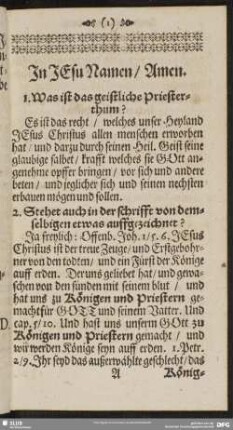 (1)
In JEsu Namen / Amen.
1. Was ist das geistliche Priester-
thum?
Es ist das recht / welches unser Heyland
JEsus Christus allen menschen erworben
hat / und darzu durch seinen Heil. Geist seine
glaubige salbet / krafft welches sie GOtt an-
genehme opffer bringen / vor sich und andere
beten / und jeglicher sich und seinen nechsten
erbauen mögen und sollen.
2. Stehet auch in der schrifft von dem-
selbigen etwas auffgezeichnet?
Ja freylich: Offenb. Joh. 1/5. 6. JEsus
Christus ist der treue Zeuge / und Erstgebohr-
ner von den todten / und ein Fürst der Könige
auff erden. Der uns geliebet hat / und gewa-
schen von den sunden mit seinem blut / und
hat uns zu Königen und Priestern ge-
macht für GOTT und seinem Vatter. Und
cap. 5/10. Und hast uns unserm GOtt zu
Königen und Priestern gemacht / und
wir werden Könige seyn auff erden. 1. Petr.
2/9. Ihr seyd das außerwählte geschlecht / das
A König-